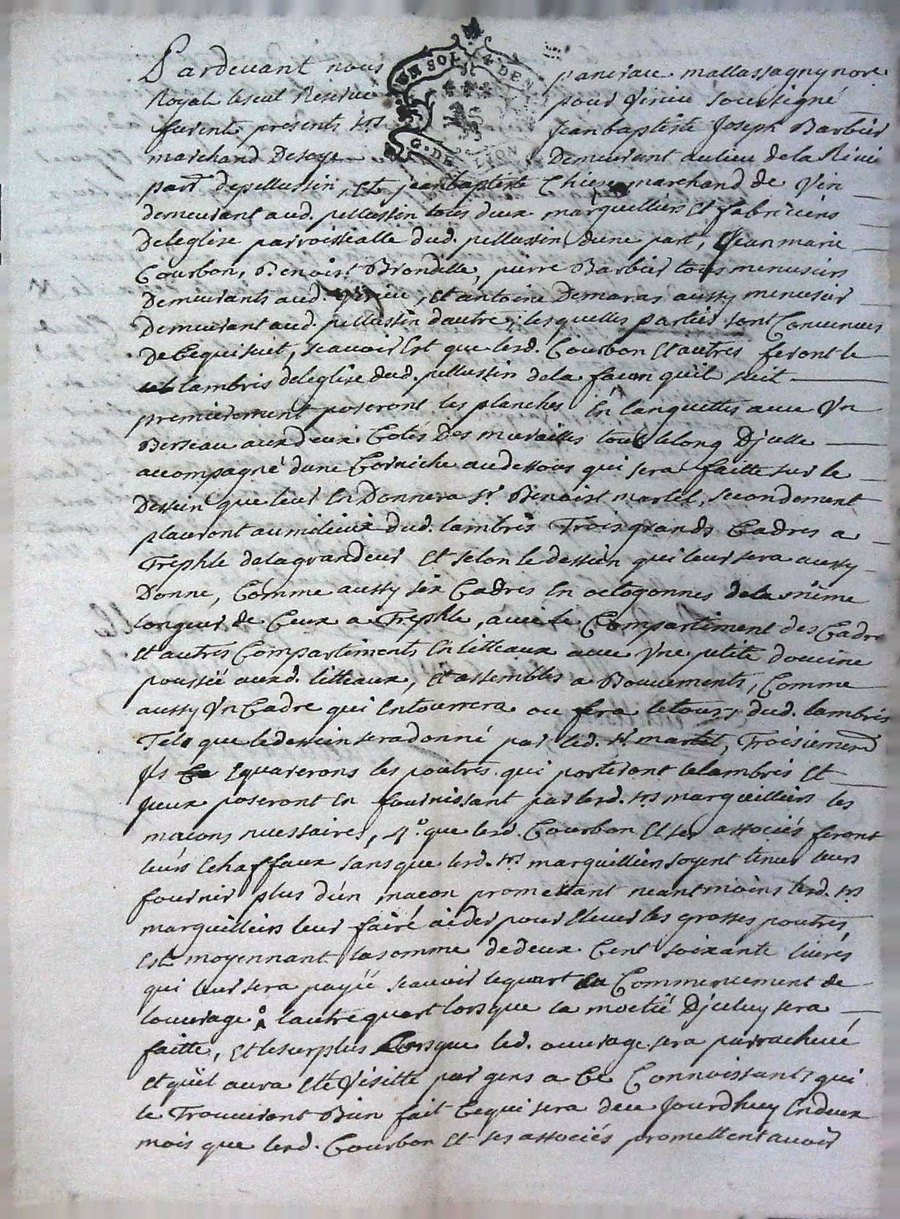 Pardevant nous pancrace mallassagny nore.
Royal le seul Reservé pour Virieu soussigné
furent presents srs Jean baptiste Joseph Barbier
marchand De soye Demeurant au lieu de la
part. de pellussin, Et jean baptiste marchand de vin
demeurant aud. pellussin tous deux marguelliers Et fabriciens
De leglise parroissialle dud. pellussin dune part, Jean marie
Courbon, Benoist Brondelle, pierre Barbier tous menusiers
Demeurants aud. Virieu, et antoine Demaras aussy menusier
Demeurant aud. pellussin dautre; lesquelles parties sont Convenues
De Cequi suit, scavoir Est que lesd. Courbon Et autres feront le
lambris de leglise dud. pellussin de la façon quil suit
premierement poseront les planches En languettes avec Un
Berseau aux deux Cotés des murailles tout le long Dicelle
accompagné dune Corniche au dessous qui sera faitte sur le
Dessin que leur En Donnera sr Benoist martel, secondement
placeront au milieux dud. lambris Trois grands Cadres a
Trephle de la grandeur Et selon le dessin qui leur sera aussy
Donne, Comme aussy six Cadres En octogonnes de la même
longeur de Ceux a Trephle, avec le Compartiment des Cadre
Et autres Compartiments En litteaux avec Une petite doucine
poussée auxd. litteaux, Et assemblés a Bouvements, Comme
aussy Un Cadre qui Entourrera ou fera letour dud. lambris
Tels que le dessein sera donné par led. sr. martel, Troisiemend
Ils Equarerons les poutres qui porteront le lambris Et
poseront En fournissant par lesd. srs marguelliers les
macons necessaires, 4.° que lesd. Courbon Et ses associés feront
leurs Echaffaux sans que lesd. srs marguilliers soyent tenus leurs
fournir plus d'un macon promettant neantmoins lesd. srs
marguilliers leur faire aider pour Elever les grosses poutres,
Est moyennant la somme de deux Cent soixante livres
qui leur sera payée scavoir le quart au Commencement de
louvrage & lautre quart lorsque la moetié Diceluy sera
faitte, et le surplus Lorsque led. ouvrage sera parrachevé
Et quil aura Eté Visitté par gens a Ce Connoissants qui
le Trouveront Bien fait Cequi sera deu Jourdhuy En deux
mois que lesd. Courbon Et ses associés promettent avoir
UN SOL 4 DEN
G. DE LION